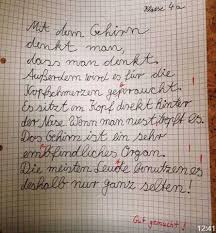 Klasse 4a
Mit dem Gehirn
denkt man,
dass man denkt.
Außerdem wird es für die
Kopfschmerzen gebraucht.
Es sitzt im Kopf direkt hinter
der Nase. Wenn man niest tropft es.
Das Gehirn ist ein sehr
empfindliches Organ.
Die meisten Leute benutzen es
deshalb nur ganz selten!
Gut gemacht!
12:41